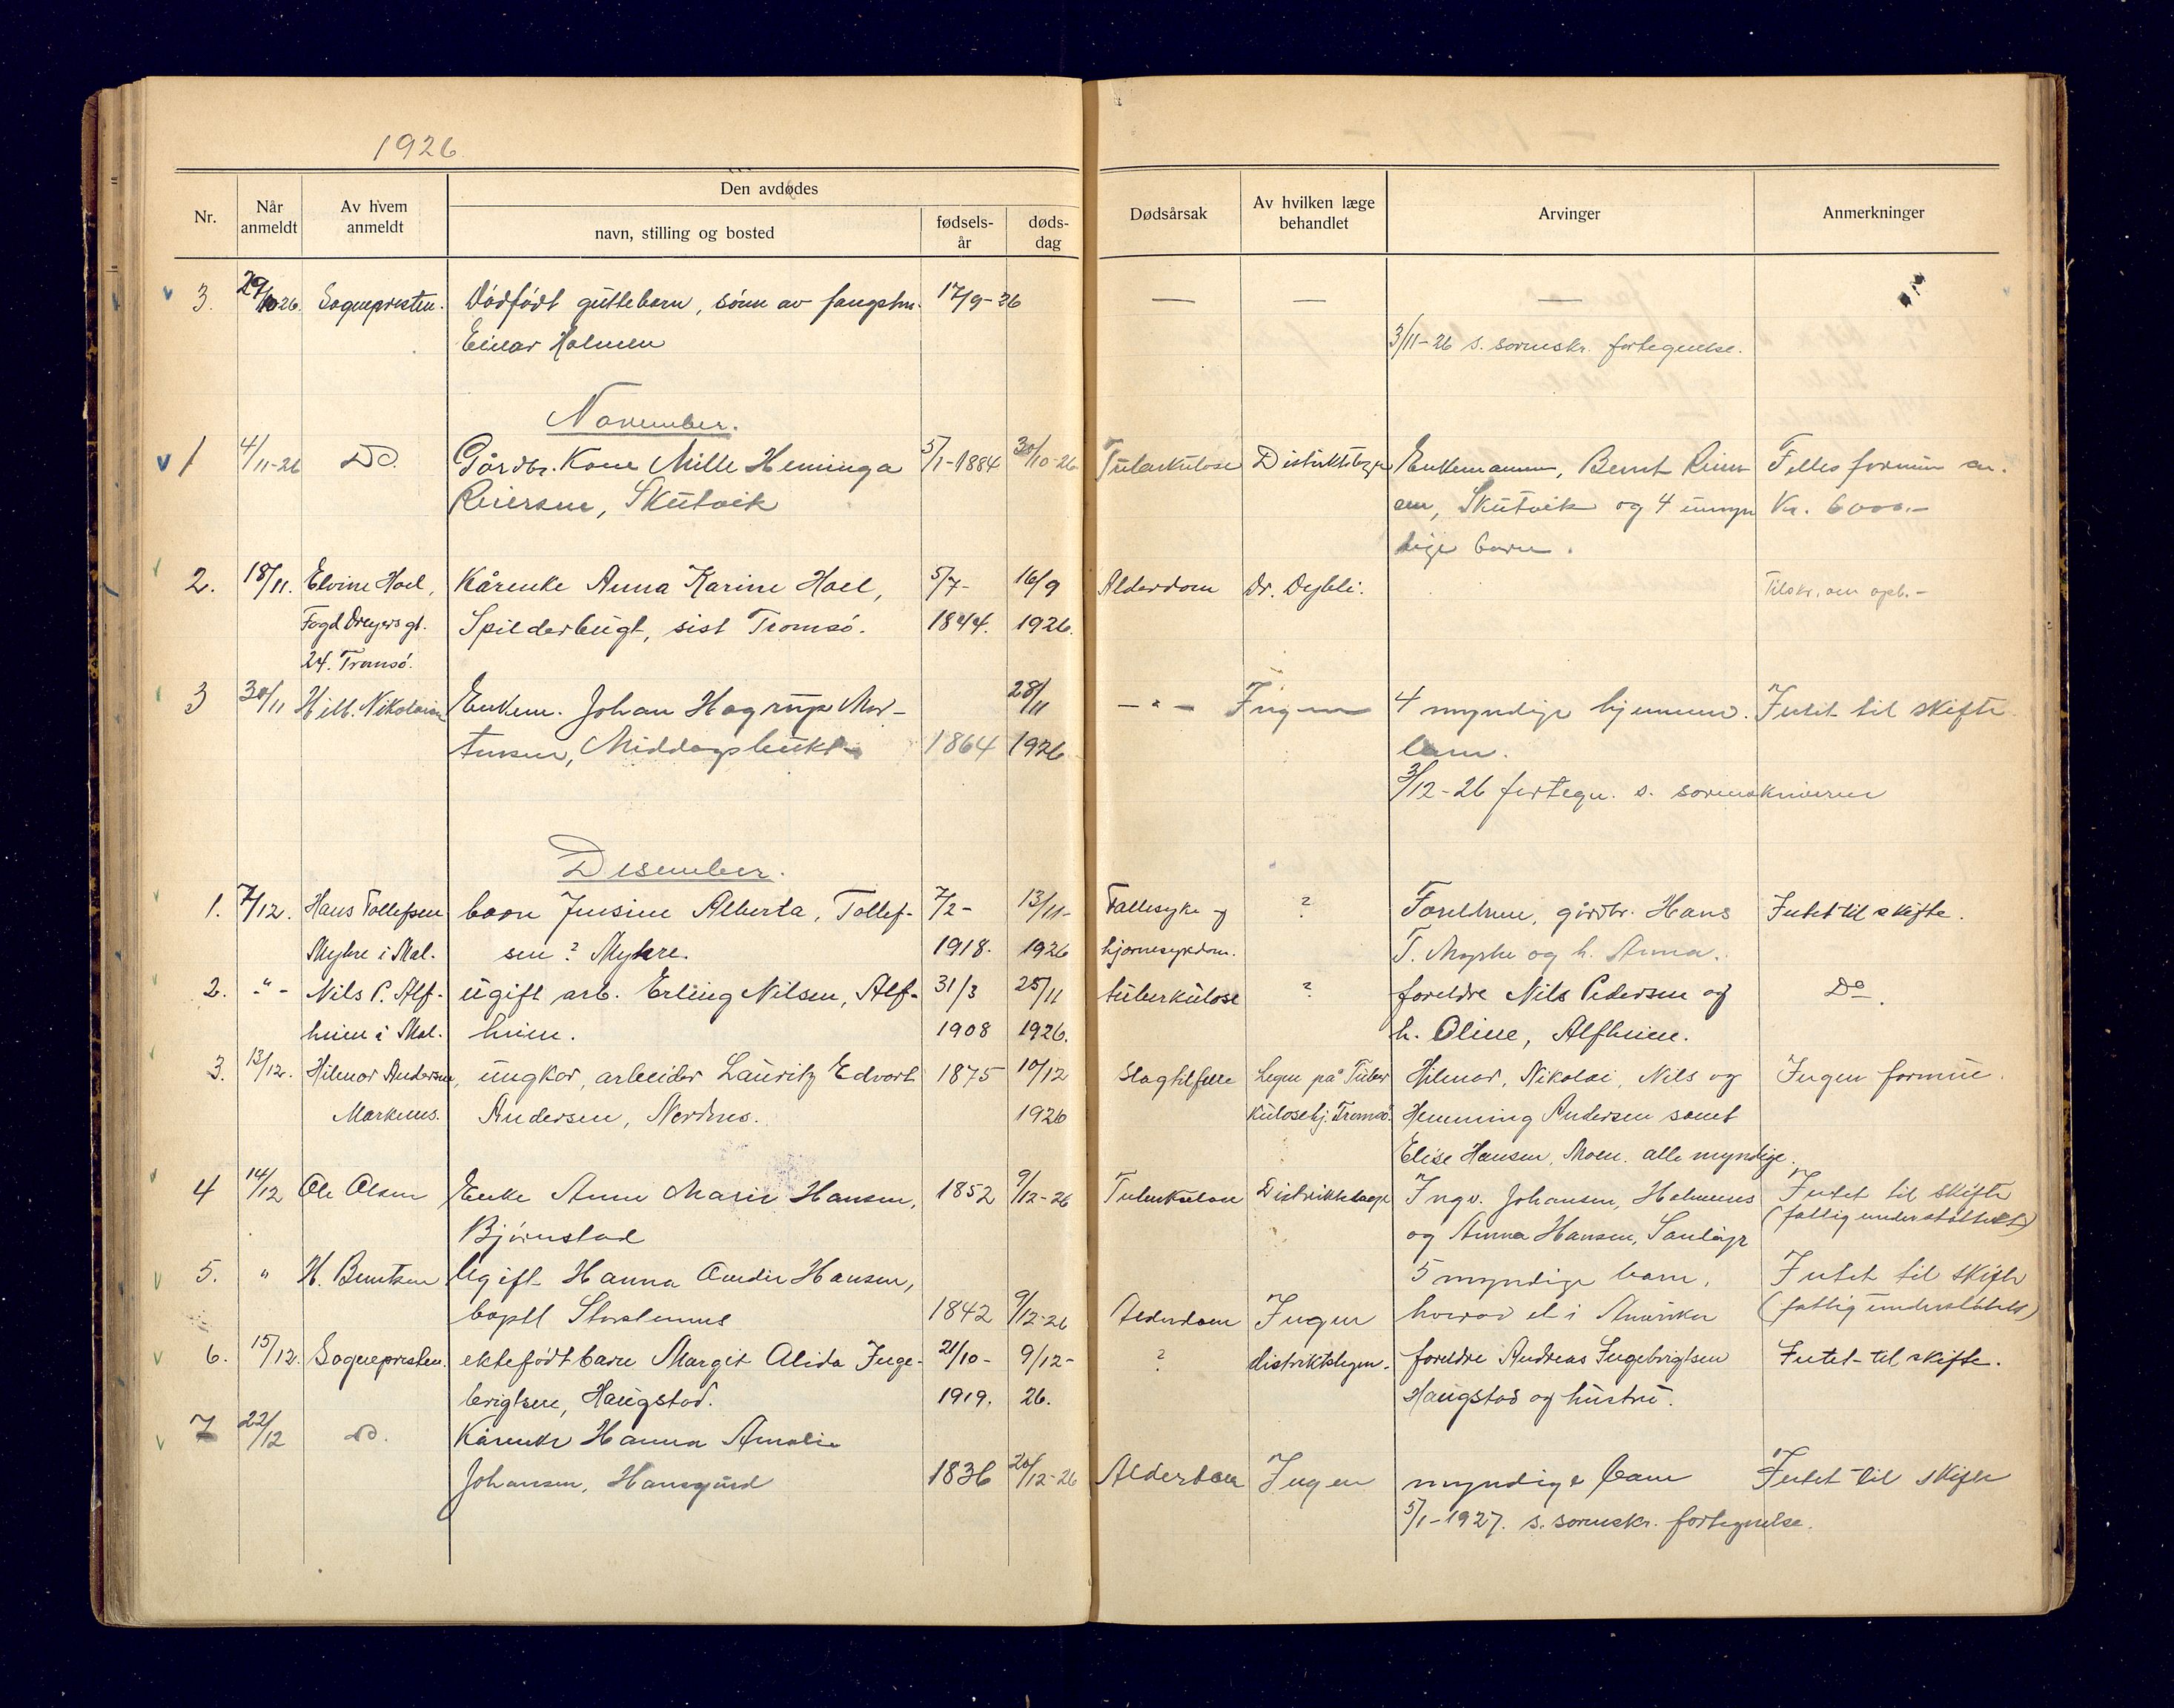 1926
Nr. Når anmeldt Av hvem anmeldt Den avdødes navn, stilling og bosted fødsels-år døds-dag Dødsårsak Av hvilken læge behandlet Arvinger Anmerkninger
3. 29/10 26. Sognepresten. Dödfödt guttebarn, sönn av fangstm. 17/9-26 — — —
Einar Holmen 3/11-26 s. sorenskr. fortegnelse.
November.
1 4/11-26 Do. Gårdbr. Kone Mille Heminga 5/1-1884 30/10-26 Tuberkulose Distriktslæge Enkemann, Bernt Reier Felles formue ca.
Reiersen, Skutvik sen, Skutvik og 4 umyn Kr. 6000.-
dige barn.
2. 18/11. Elvine Hoel, Kårenke Anna Karine Hoel, 5/7- 16/9 Alderdom Dr. Dybli. Tilskr. om opl.-
Fogd Dreyersgt. Spilderbugt, sist Tromsö. 1844. 1926.
24. Tromsö.
3 30/11 Hilb. Nikolaisen Enkem. Johan Hagrup Mor- 28/11 - " - Ingen 4 myndige hjemmev. Intet til skifte
tensen, Middagsbukt 1864 1926 barn.
3/12-26 fortegn. s. sorenskriveren
Desember.
1. 7/12. Hans Tollefsen barn Jensine Alberta, Tollef- 7/2- 13/11- Fallesyke og ? Foreldrene, gårdbr. Hans Intet til skifte.
Mykre i Mal. sen? Mykre. 1918. 1926 hjernesykdom. T. Myhre og h. Anna.
2. -"- Nils P. Alf- ugift arb. Erling Nilsen, Alf- 31/3 25/11 tuberkulose ? foreldre Nils Pedersen og Do.
heim i Mal. heim. 1908 1926. h. Oline, Alfheim.
3. 13/12. Hilmar Andersen, ungkar, arbeider Lauritz Edvart 1875 10/12 Slagtilfelle Legen på Tuber Hilmar, Nikolai, Nils og Ingen formue.
Markenes. Andersen, Nordnes. 1926 kulosehj. Tromsö. Hemming Andersen samt
Elise Hansen, Moen. alle myndige.
4 14/12 Ole Olsen Enke Anne Marie Hansen, 1852 9/12-26 Tuberkulose Distriktslæge Ingv. Johansen, Holmenes Intet til skifte
Björnstad og Anna Hansen, (fattig understöttet)
5. " H. Berntsen Ugift Hanna Hansen, 5 myndige barn, Intet til skifte
boptl 1842 9/12-26 Alderdom Ingen hvorav et i Amerika (fattig understöttet)
6. 15/12 Sognepresten. ektefödt barn Margit Alida Inge- 21/10- 9/12- ? distriktslegen. foreldre Andreas Ingebrigtsen Intet til skifte.
brigtsen, Haugstad. 1919. 26. Haugstad og hustru.
7 22/12 do. Kårenke Hanna Amalie
Johansen, Hansgård 1836 20/12-26 Alderdom Ingen myndige barn Intet til skifte
5/1-1927. s. sorenskr. fortegnelse.